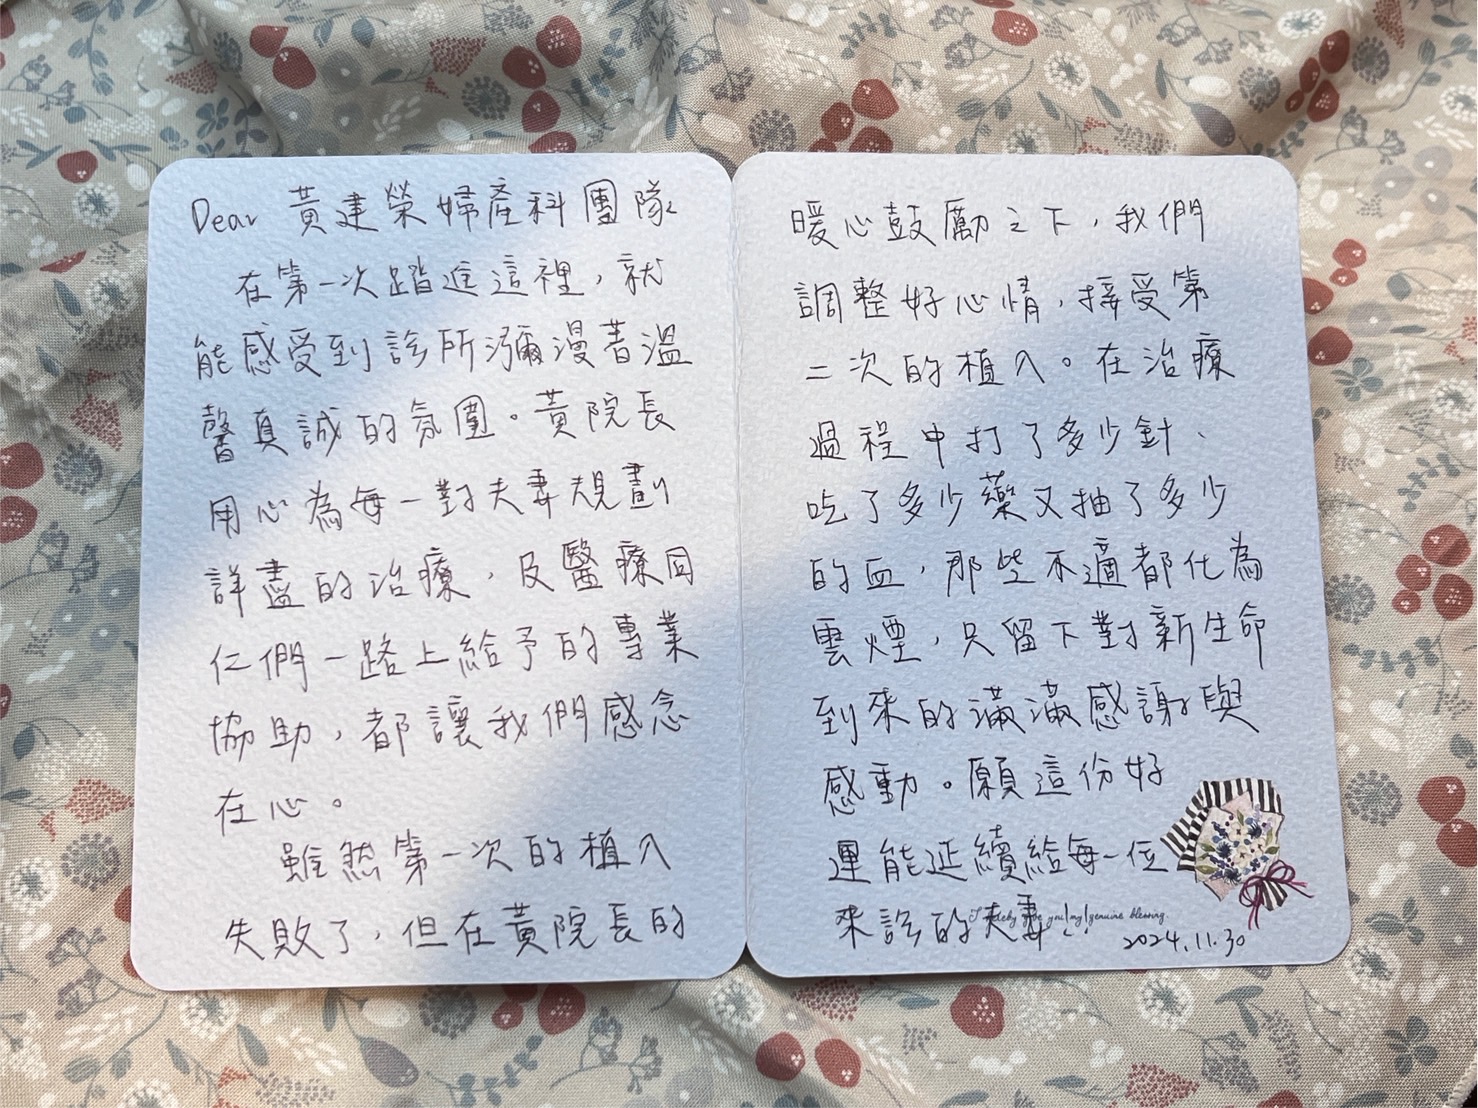 Dear 黃建榮婦產科團隊
在第一次踏進這裡，就
能感受到診所瀰漫著溫
馨真誠的氛圍。黃院長
用心為每一對夫妻規劃
詳盡的治療，及醫療同
仁們一路上給予的專業
協助，都讓我們感念
在心。
雖然第一次的植入
失敗了，但在黃院長的
暖心鼓勵之下，我們
調整好心情，接受第
二次的植入。在治療
過程中打了多少針、
吃了多少藥又抽了多少
的血，那些不適都化為
雲煙，只留下對新生命
到來的滿滿感謝與
感動。願這份好
運能延續給每一位
來診的夫妻！！
you my genuine blessing.
2024.11.30